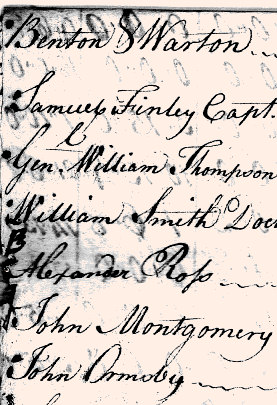 Benton & Warton
Samuel Finley Capt.
Genl. William Thompson
William Smith Doct
Alexander Ross
John Montgomery
John Ormsby